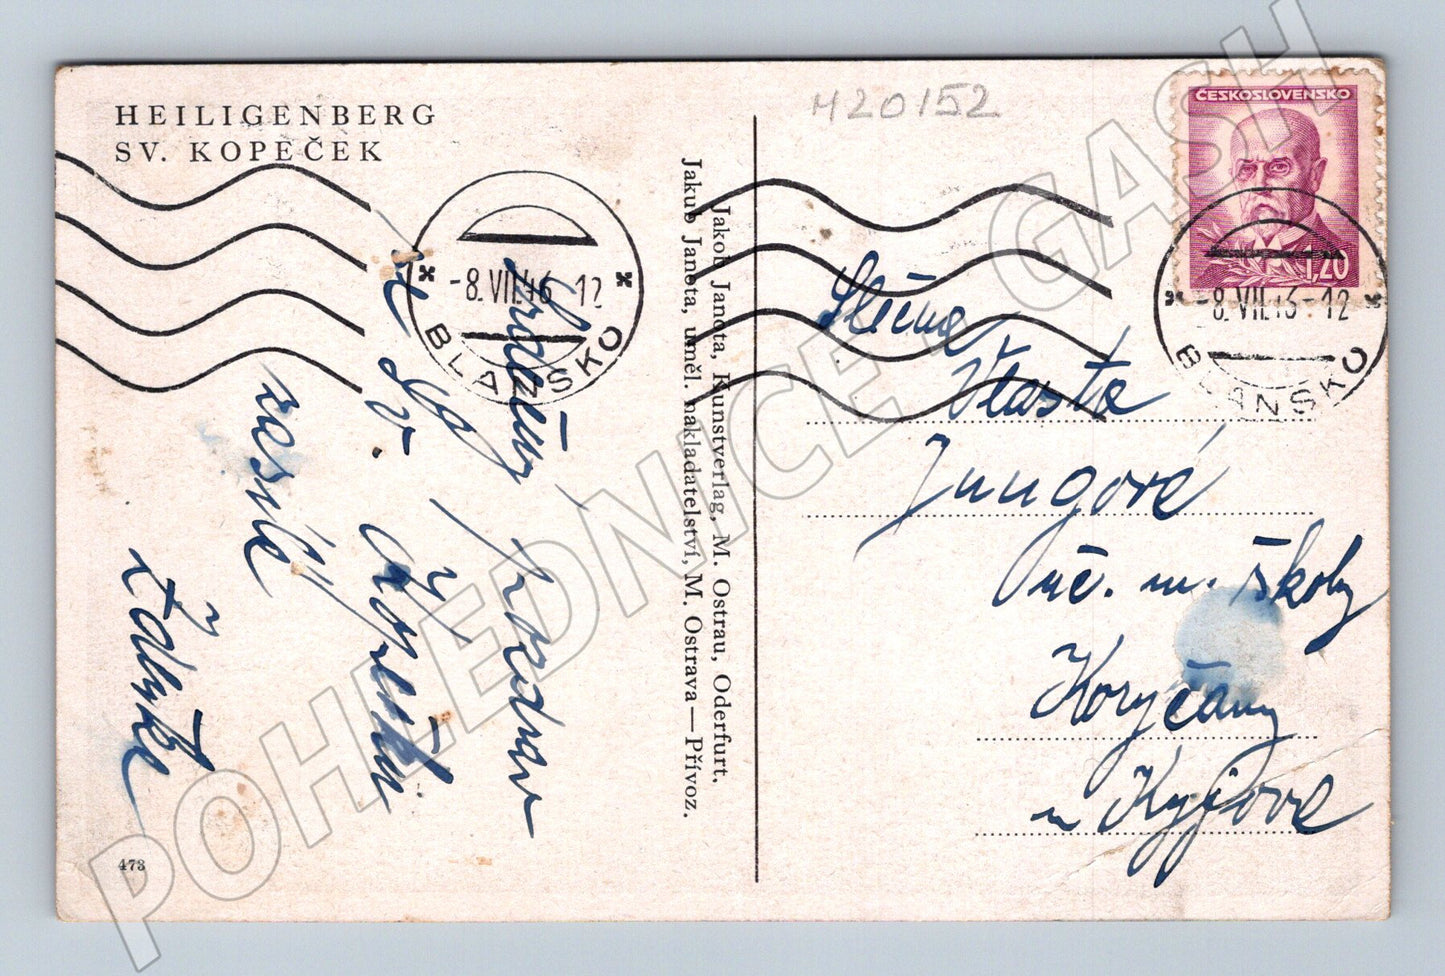 HEILIGENBERG
SV. KOPEČEK
M20152
ČESKOSLOVENSKO
1,20
-8.VII.46-12
BLANSKO
-8.VII.46-12
BLANSKO
Jakob Janota, Kunstverlag, M. Ostrau, Oderfurt.
Jakub Janota, uměl. nakladatelství, M. Ostrava—Přívoz.
Srdečný pozdrav
ze Sv.
zasílá
Slečna
Vlasta
Jungová
uč. m. školy
Koryčany
u Kyjova
473
POHLEDNICE - GASH